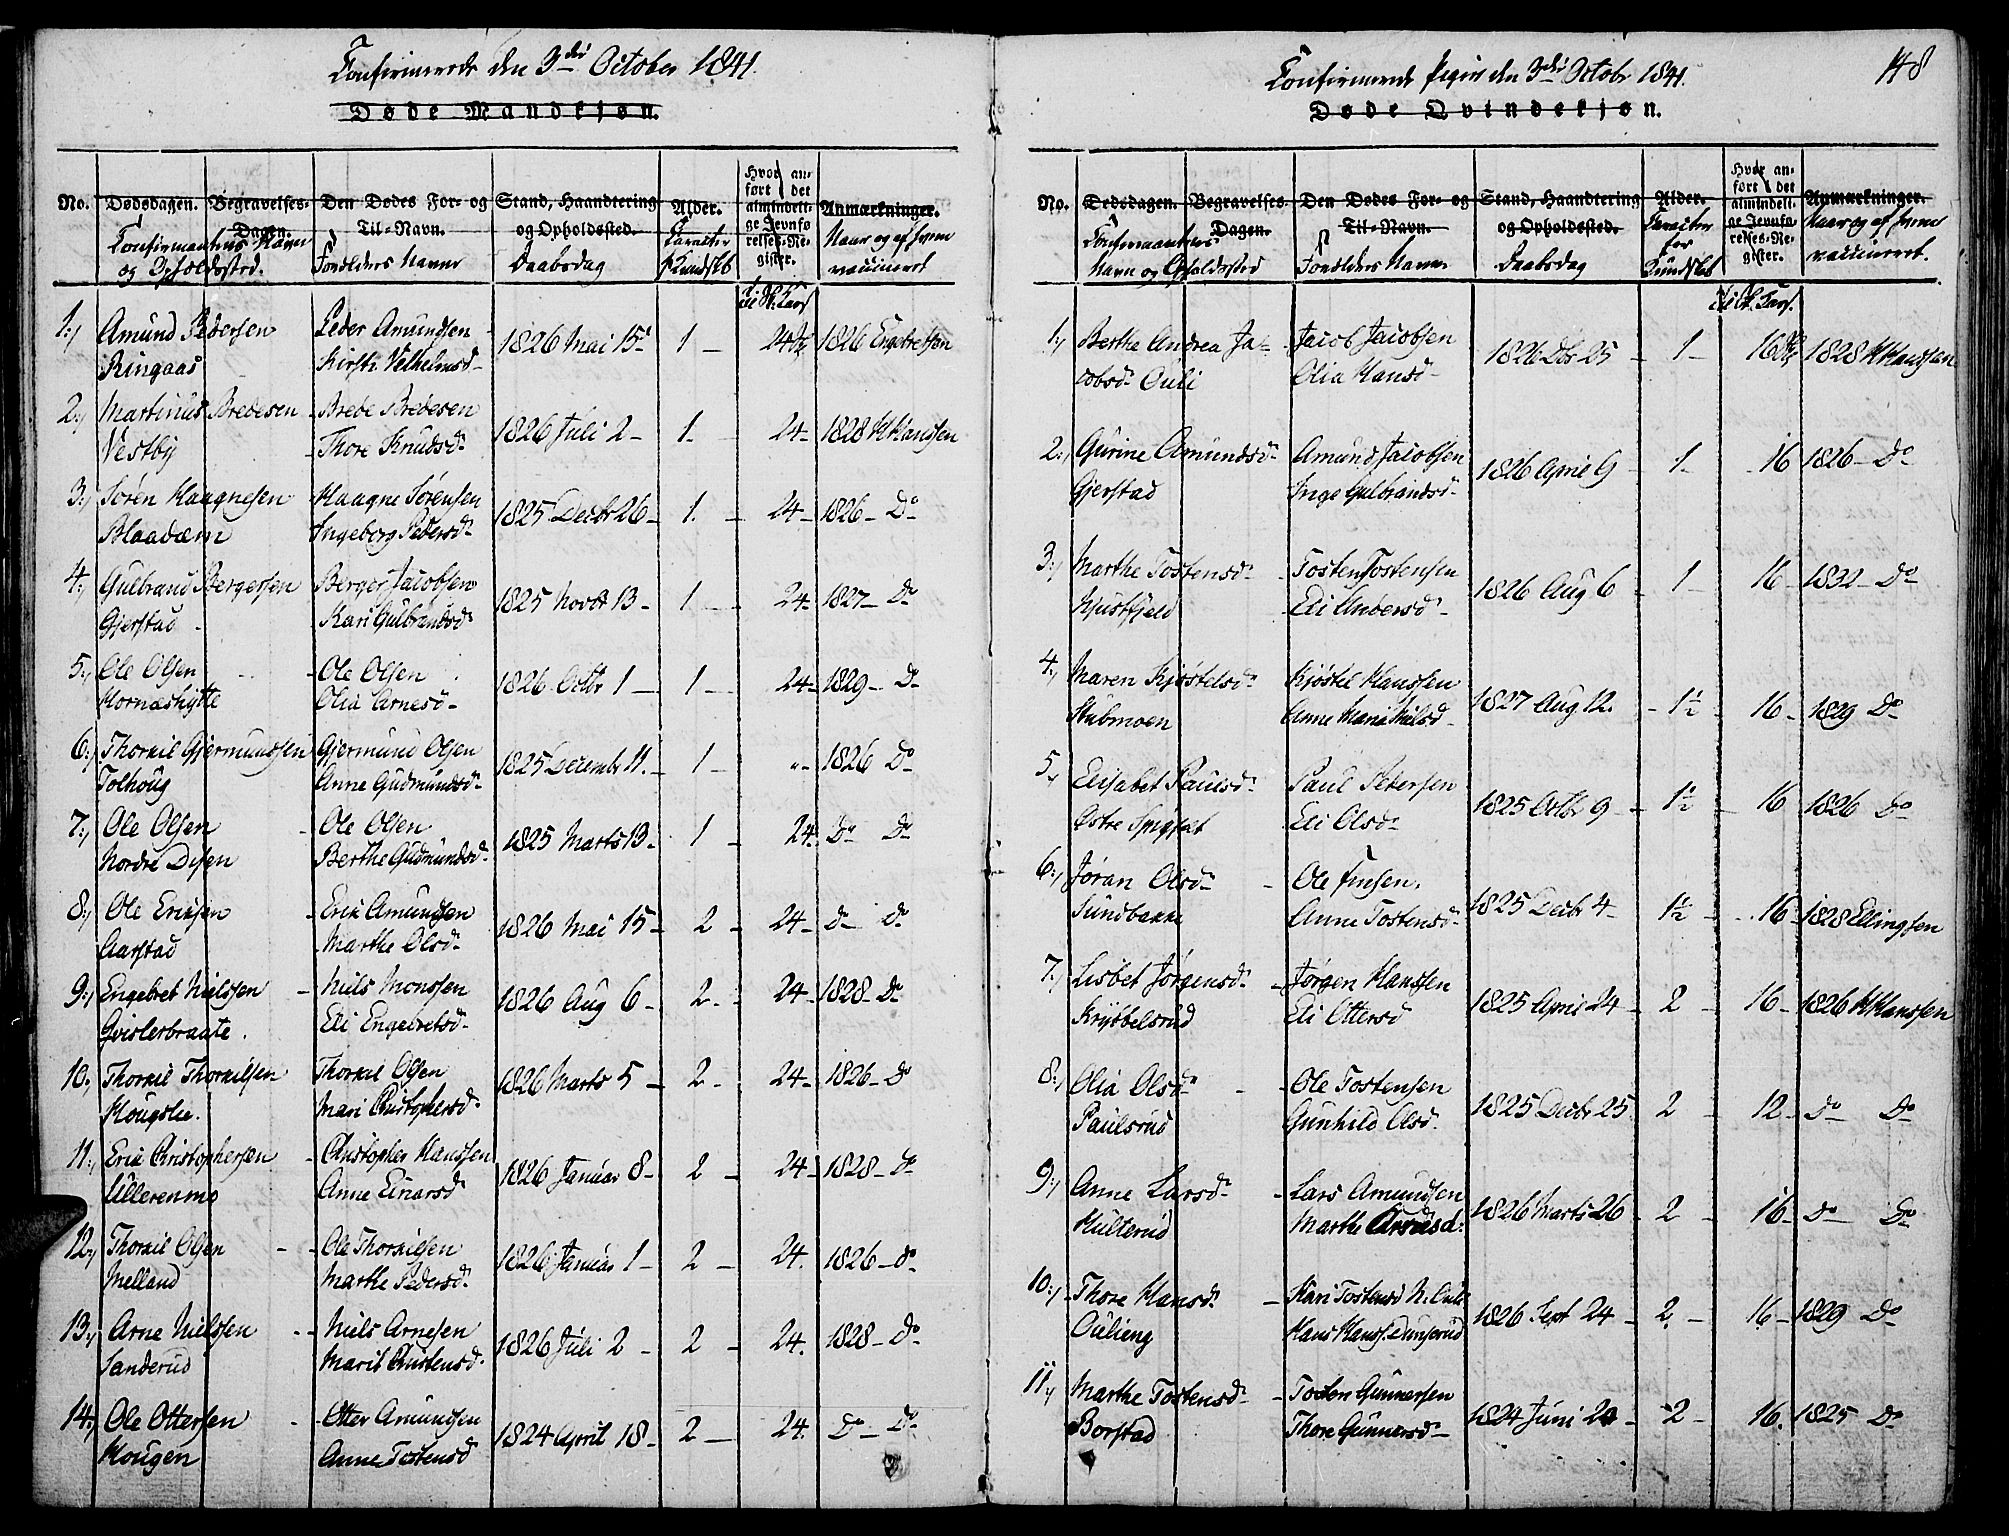 Confirmerede den 3die October 1841.
Døde Mandkjøn.
No. Dødsdagen. Begravelses-Dagen. Den Dødes For- og Til-Navn. Stand, Haandtering og Opholdssted. Alder. Hvor anført i det almindelige Jevnførelses-Register. Anmærkninger.
Confirmantens Navn og Opholdssted. Forældres Navne Daabsdag Caracter Kundskb Naar og af hvem vaccineret
til Sk. Kass
1. Amund Pedersen Peder Amundsen 1826 Mai 15 1 24 1826 Engebretsen
Ringaas Kirsti Velhelmsd
2. Martinus Bredesen Brede Bredesen 1826 Juli 2 1 24 1828 H Hanssen
Vestby Thore Knudsd
3. Sørén Haagnesen Haagne Sørensen 1825 Decbr 26 1. 24 1826 Do
Blaadæm Ingeborg Pedersd
4. Gulbrand Bergersen Berger Jacobsen 1825 Novbr 13 1 24 1827 Do
Gjerstad Kari Gulbrandsd
5. Ole Olsen Ole Olsen 1826 Octbr 1 1 24 1829 Do
Kornæshytte Olia Arnesd
6. Thorkil Gjermundsen Gjermund Olsen 1825 Decembr 11. 1 " 1826 Do
Tolhoug Anne Gudmundsd
7. Ole Olsen Ole Olsen 1825 Marts 13 1 24 Do Do
Nordre Disen Berthe Gudmundsd
8. Ole Eriksen Erik Amundsen 1826 Mai 15 2 24 Do Do
Aarstad Marthe Olsd
9. Engebret Nielssen Niels Monssen 1826 Aug 6 2 24 1828 Do
Gvislerbraate. Eli Engebretsd
10. Thorkil Thorkilsen Thorkil Olsen 1826 Marts 5 2 24 1826 Do
Hougslie. Mari Christophersd
11. Erik Christophersen Christopher Hanssen 1826 Januar 8 2 24 1828 Do
Ullerenmo Anne Einarsd
12. Thorkil Olsen Ole Thorkilsen 1826 Januar 1 2 24. 1826 Do
Melland Marthe Pedersd
13. Arne Nielssen Niels Arnesen 1826 Juli 2 2 24. 1828 Do
Sanderud Marit Christensd
14. Ole Ottersen Otter Amundsen 1824 April 18 2 24. Do Do
Hougen Anne Tostensd
148
Confirmerede Piger den 3die Octobr 1841.
Døde Qvindekjøn.
No. Dødsdagen. Begravelses Dagen. Den Dødes For- og Til-Navn. Stand, Haandtering og Opholdssted. Alder. Hvor anført i det almindelige Jevnførelses-Register. Anmærkninger.
Confirmantens Navn og Opholdssted Forældres Navne Daabsdag Caracter for Kundskb Naar og af hvem vaccineret.
til Sk. Kass.
1. Berthe Andrea Ja- Jacob Jacobsen 1826 Dbr 25 1 16 1828 H Hanssen
cobsd Ouli Olia Hansd
2. Gurine Amundsd Amund Jacobsen 1826 April 9 1 16 1826 Do
Gjerstad Inge Gulbrandsd
3. Marthe Tostensd Tosten Tostensen 1826 Aug 6 1 16 1832 Do
Kjustfjeld Eli Andersd
4. Maren Kjøstelsd Kjøstel Hanssen 1827 Aug 12. 1½ 16 1829 Do
Stubmoen Anne Maria Nielsd
5. Elisabet Paulsd Paul Petersen 1825 Octbr 9 1½ 16 1826 Do
Østre Spigset Eli Olsd
6. Jøran Olsd Ole Finsen. 1825 Decbr 4 1½ 16 1828 Ellingsen
Sundbakke Anne Tostensd
7. Lisbet Jørgensd Jørgen Hanssen 1825 April 24 2 16 1826 H Hanssen
Krysbelsrud Eli Ottersd
8. Olia Olsd Ole Tostensen 1825 Decbr 25 2 12 Do Do
Paulsrud Gunhild Olsd.
9. Anne Larsd Lars Amundsen 1826 Marts 26 2 16 Do Do
Hulterud Marthe Arnesd.
10. Thore Hansd Kari Tostensd N. Ouli 1826 Sept 24 2. 16 1829 Do
Oulieng Hans Hanss. Dunserud
11. Marthe Tostensd Tosten Gunnersen 1824 Juni 24 2 16. 1825 Do
Borstad Thore Gunnersd